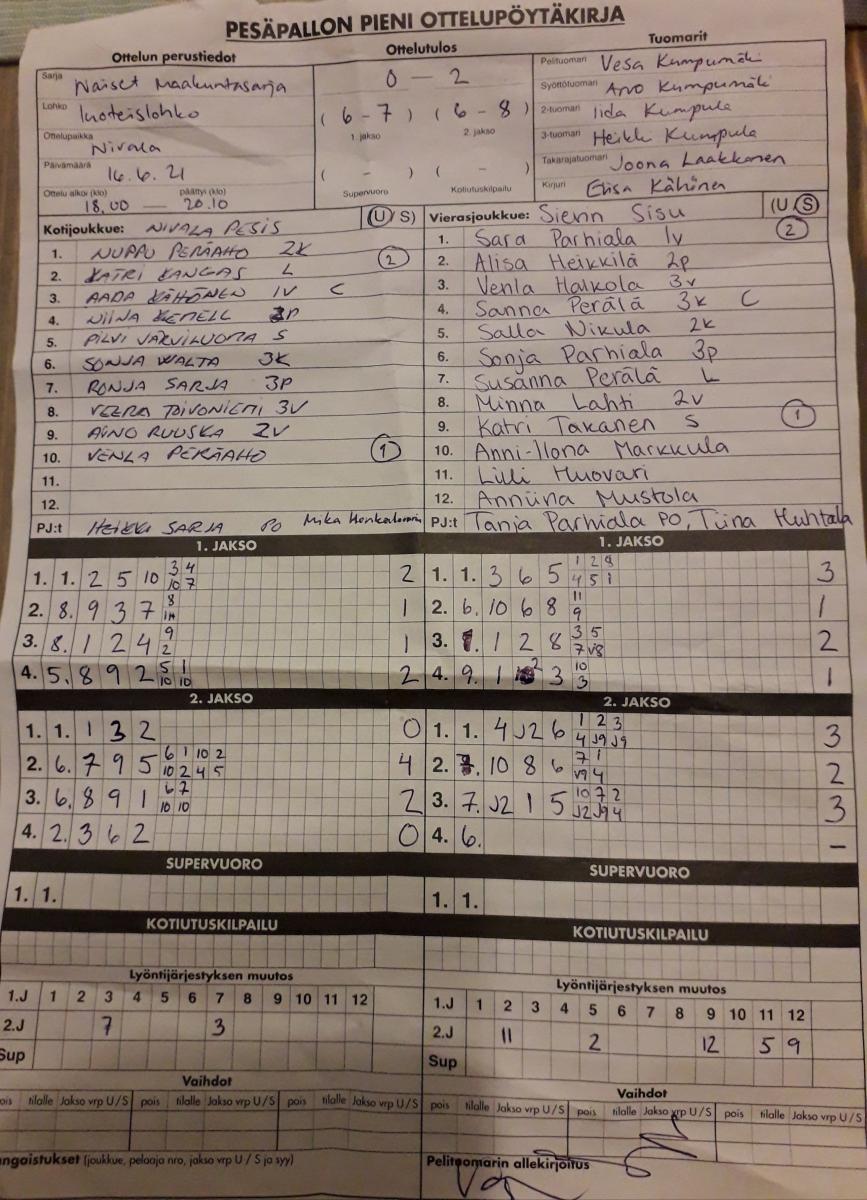 PESÄPALLON PIENI OTTELUPÖYTÄKIRJA
Ottelun perustiedot
Sarja Naiset Maakuntasarja
Lohko luoteislohko
Ottelupaikka Nivala
Päivämäärä 16.6.21
Ottelu alkoi (klo) päättyi (klo)
18.00 — 20.10
Ottelutulos
0 — 2
( 6 - 7 ) ( 6 - 8 )
1. jakso 2. jakso
( - ) ( - )
Supervuoro Kotiutuskilpailu
Tuomarit
Pelituomari Vesa Kumpumäki
Syöttötuomari Arvo Kumpumäki
2-tuomari Iida Kumpula
3-tuomari Heikki Kumpula
Takarajatuomari Joona Laakkonen
Kirjuri Elisa Kähönen
Kotijoukkue: NIVALA PESIS (U/S)
1. NUPPU PERÄAHO 2K 2
2. KATRI KANGAS L
3. AADA KÄHÖNEN 1V C
4. NIINA KEMELL 2P
5. PILVI JÄRVILUOMA S
6. SONJA WALTA 3K
7. RONJA SARJA 3P
8. VEERA TOIVONIEMI 3V
9. AINO RUUSKA 2V
10. VENLA PERÄAHO 1
11.
12.
PJ:t HEIKKI SARJA PO Mika
Vierasjoukkue: Sievin Sisu (U/S)
1. Sara Parhiala 1v 2
2. Alisa Heikkilä 2p
3. Venla Halkola 3v
4. Sanna Perälä 3k C
5. Salla Nikula 2k
6. Sonja Parhiala 3p
7. Susanna Perälä L
8. Minna Lahti 2v
9. Katri Takanen S 1
10. Anni-Ilona Markkula
11. Lilli Huovari
12. Anniina Mustola
PJ:t Tanja Parhiala PO, Tiina Huhtala
1. JAKSO
1. 1. 2 5 10 3 4 2
10 7
2. 8. 9 3 7 8 1
3. 8. 1 2 4 9 1
2
4. 5. 8 9 2 5 1 2
10 10
2. JAKSO
1. 1. 1 3 2 0
2. 6. 7 9 5 6 1 10 2 4
10 2 4 5
3. 6. 8 9 1 6 7 2
10 10
4. 2. 3 6 2 0
SUPERVUORO
1. 1.
KOTIUTUSKILPAILU
Lyöntijärjestyksen muutos
1.J 1 2 3 4 5 6 7 8 9 10 11 12
2.J 7 3
Sup
Vaihdot
pois tilalle Jakso vrp U/S pois tilalle Jakso vrp U/S pois tilalle Jakso vrp U/S
ngaistukset (joukkue, pelaaja nro, jakso vrp U / S ja syy)
1. JAKSO
1. 1. 3 6 5 1 2 8 3
4 5 1
2. 6. 10 6 8 11 1
9
3. 1. 1 2 8 3 5 2
7 v8
4. 9. 1 2 3 10 1
3
2. JAKSO
1. 1. 4 J2 6 1 2 3 3
4 J9 J9
2. 10 8 6 7 1 2
v9 4
3. 7. J2 1 5 10 7 2 3
J2 J9 4
4. 6. –
SUPERVUORO
1. 1.
KOTIUTUSKILPAILU
Lyöntijärjestyksen muutos
1.J 1 2 3 4 5 6 7 8 9 10 11 12
2.J 11 2 12 5 9
Sup
Vaihdot
pois tilalle Jakso vrp U/S pois tilalle Jakso vrp U/S pois tilalle Jakso vrp U/S
Pelituomarin allekirjoitus